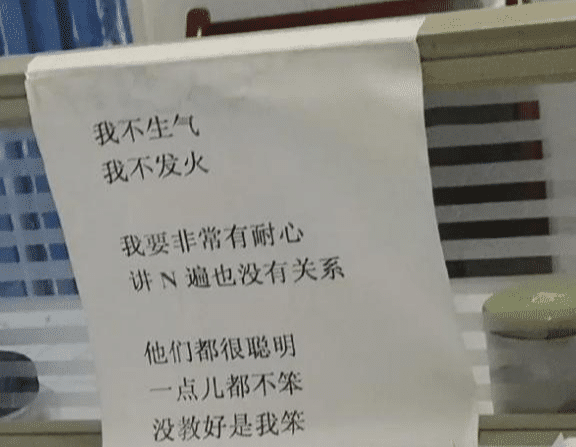 我不生气
我不发火
我要非常有耐心
讲 N 遍也没有关系
他们都很聪明
一点儿都不笨
没教好是我笨